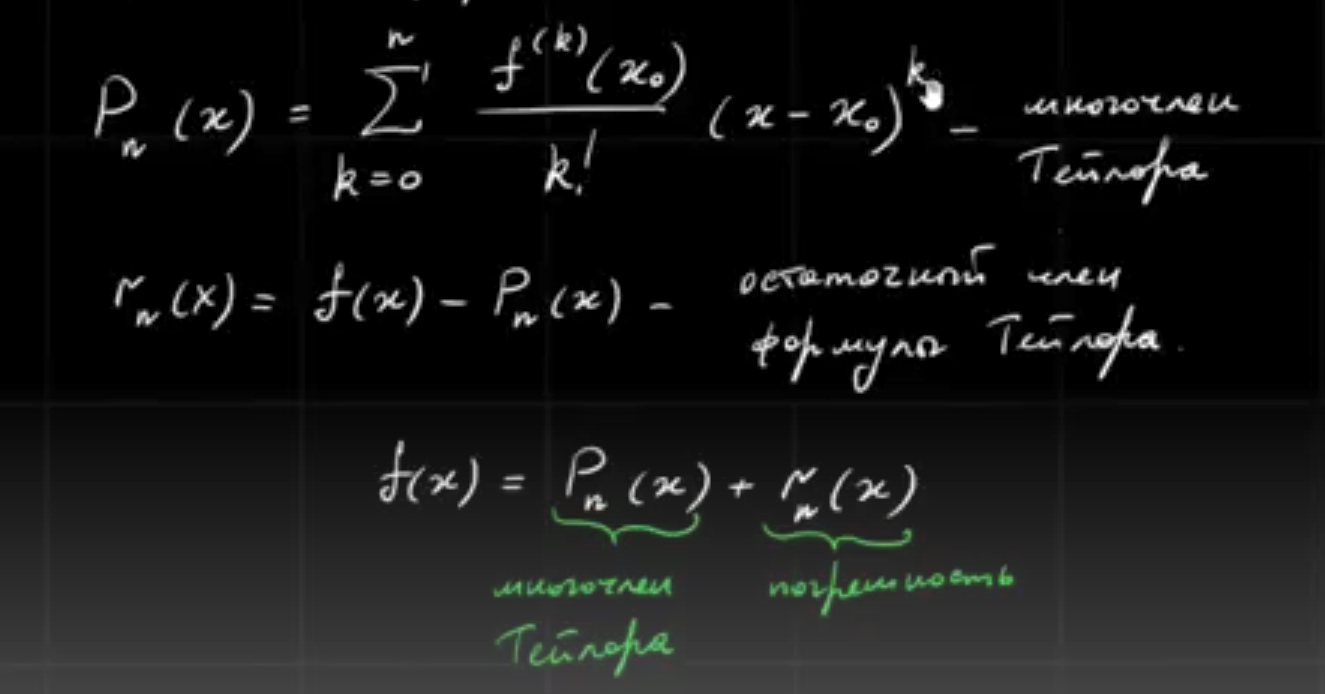 Pₙ(x) = ∑ₖ₌₀ⁿ f⁽ᵏ⁾(x₀)/k! (x - x₀)ᵏ - многочлен
Тейлора
rₙ(x) = f(x) - Pₙ(x) - остаточный член
формулы Тейлора.
f(x) = Pₙ(x) + rₙ(x)
многочлен погрешность
Тейлора